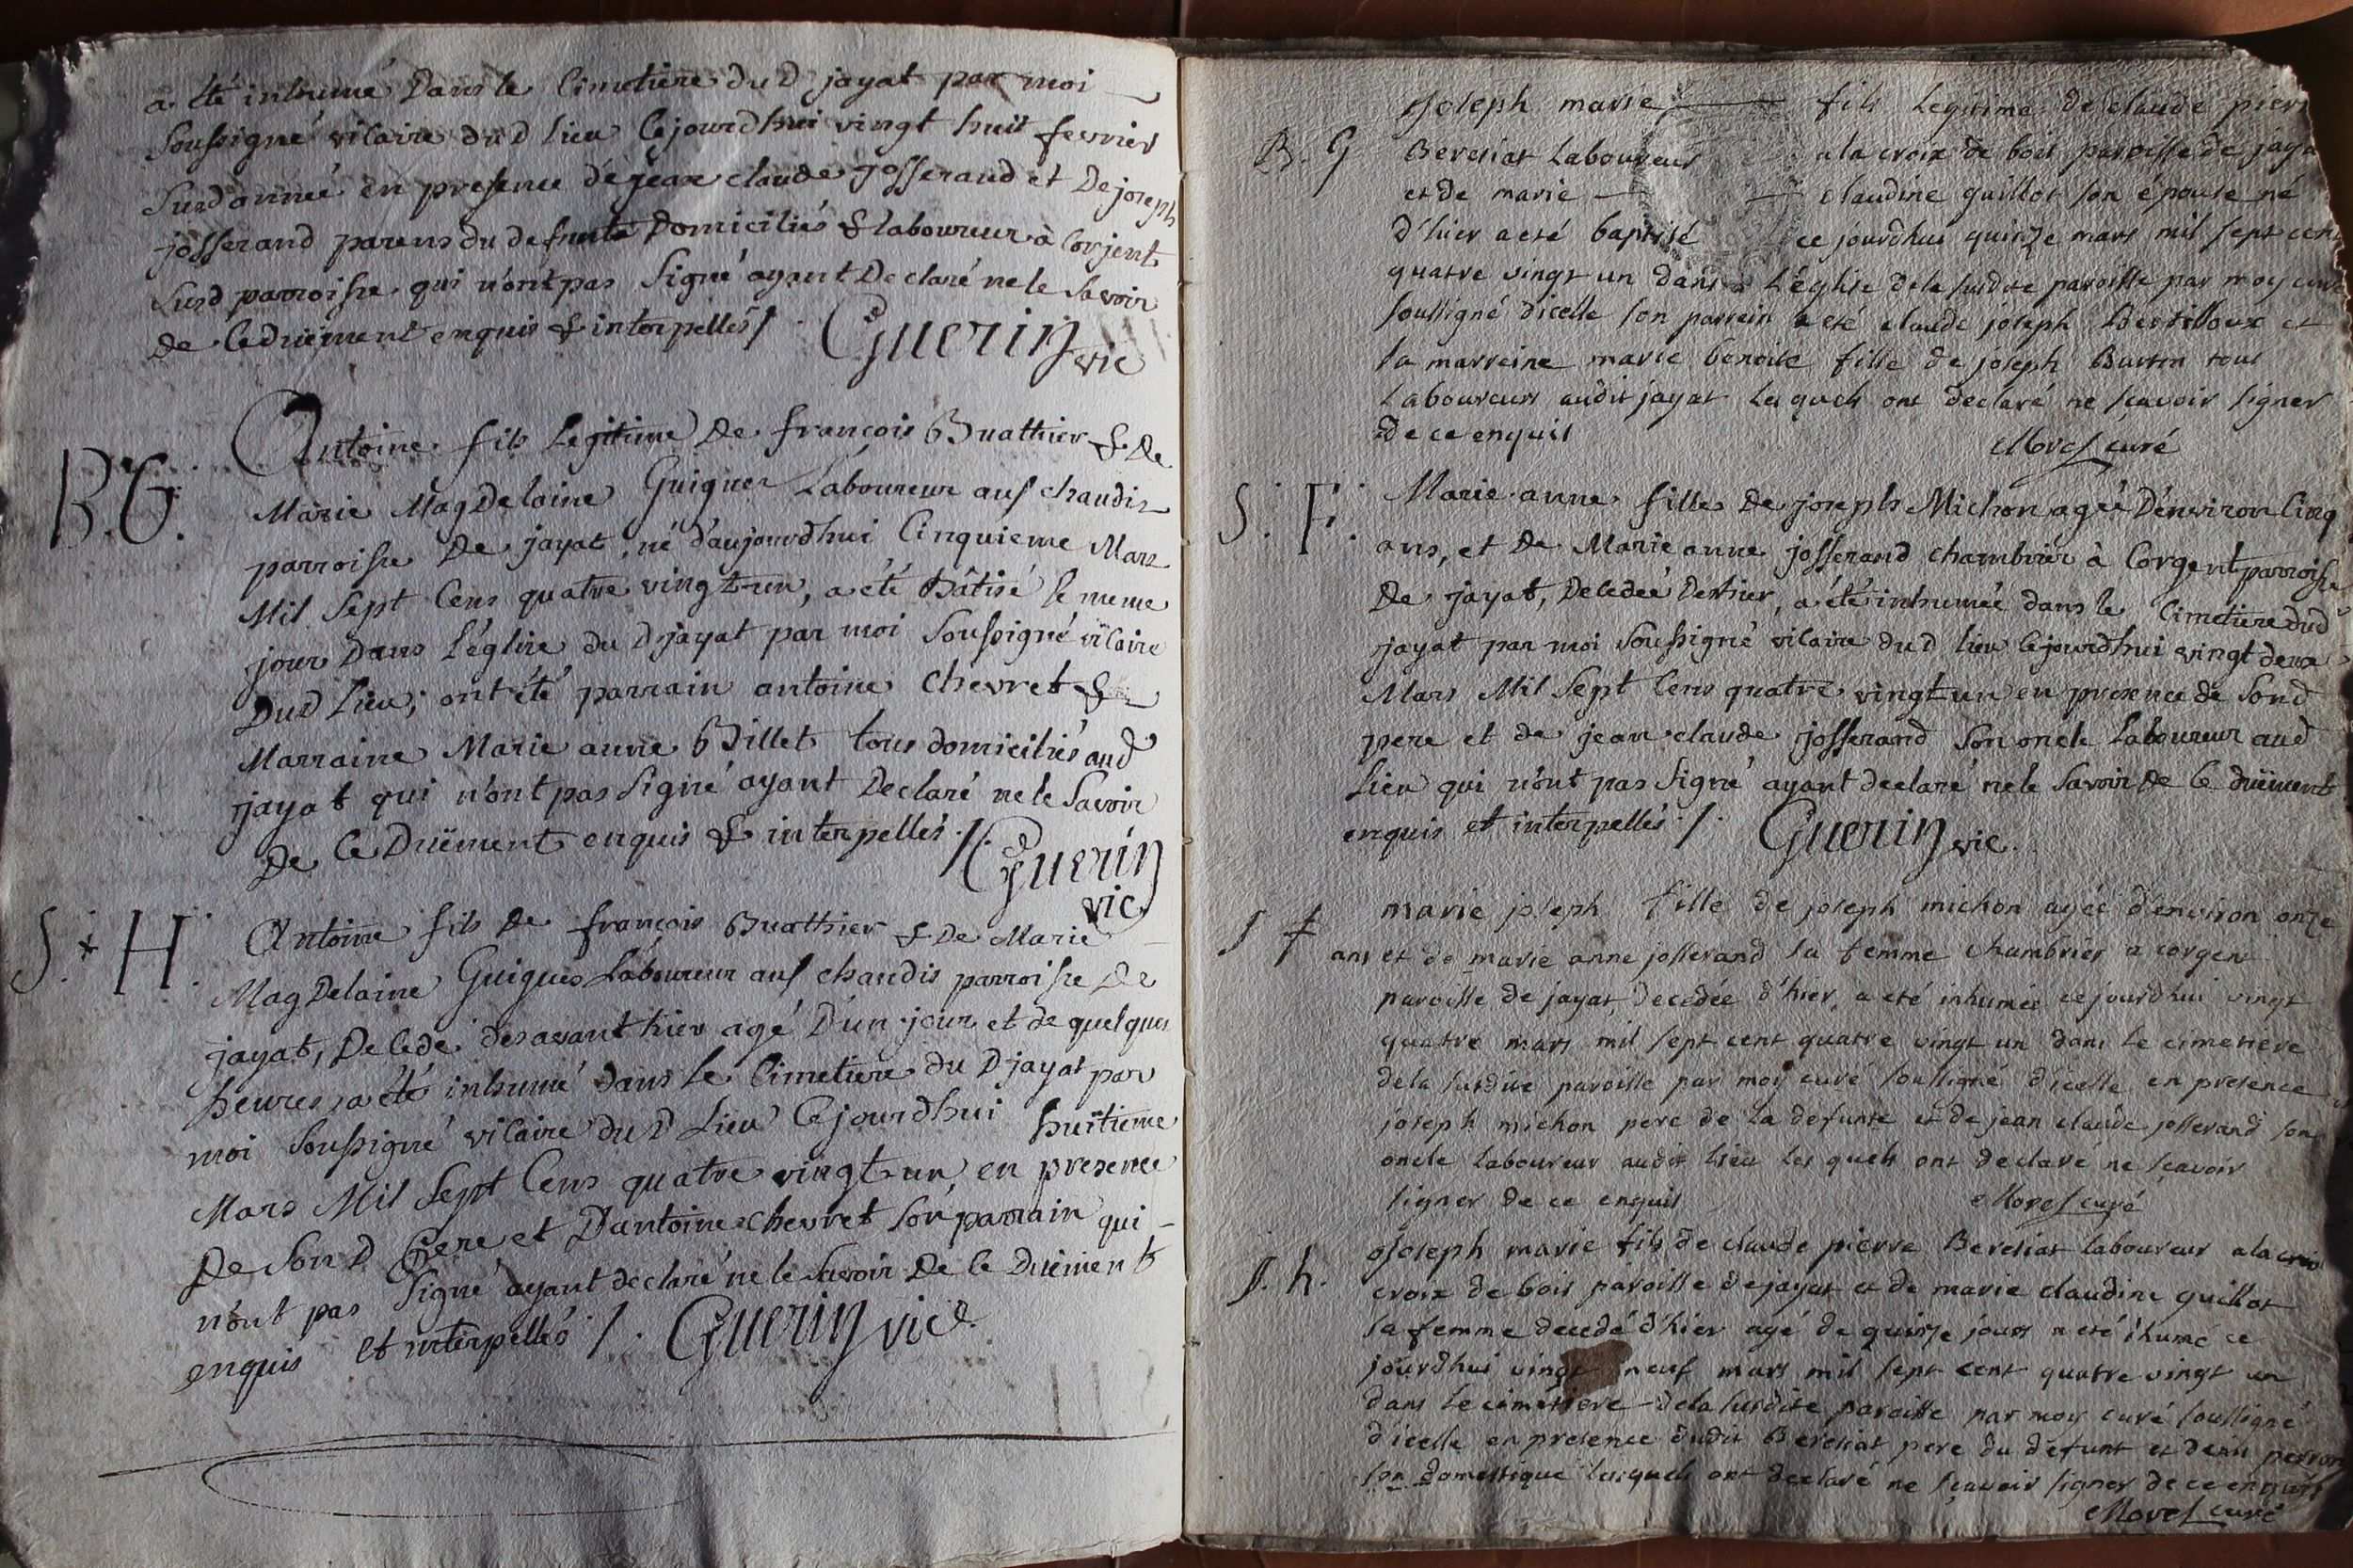 a été inhumé Dans le Cimetiere du D jayat par moi
Soussigné vicaire du D lieu Cejourdhui vingt huit fevrier
Susd année en presence de jean claude josserand et De joseph
josserand parens du defunte Domiciliés & laboureur à Corjent
Susd parroisse qui n'ont pas Signé ayant Declaré ne le Savoir
De Ce düement enquis & interpellés /. Guerin vic
B.G.
Antoine fils Legitime De françois Buathier & De
Marie Magdelaine Guigues Laboureur aus chaudis
parroisse De jayat, né d'aujourdhui Cinquieme Mars
Mil Sept Cens quatre vingt-un, a été bâtisé le meme
jour Dans l'église du D jayat par moi Soussigné vicaire
Dud Lieu; ont été parrain antoine Chevret &
Marraine Marie anne Billet tous domiciliés aud
jayat qui n'ont pas Signé ayant Declaré ne le Savoir
De Ce Düement enquis & interpellés ./. Guerin
vic
S. H.
Antoine fils De françois Buathier & De Marie
Magdelaine Guigues Laboureur aus chaudis parroisse De
jayat, Decedé des avant hier agé D'un jour et de quelques
heures, a été inhumé dans le Cimetiere du D jayat par
moi Soussigné vicaire du D Lieu Cejourdhui huitieme
Mars Mil Sept Cens quatre vingt-un, en presence
De Son D Pere et D'antoine Chevret Son parrain qui
n'ont pas Signé ayant declaré ne le Savoir De Ce Düement
enquis et interpellés /. Guerin vic.
B. G
Joseph marie fils Legitime de claude pierre
Beresiat Laboureur a la croix de bois paroisse de jaya
et de marie claudine guillot son épouse né
d'hier a eté baptisé ce jourdhui quinze mars mil sept cent
quatre vingt un dans L'église de la susdite paroisse par moy curé
soussigné d'icelle son parrein a eté claude joseph et
sa marreine marie benoite fille de joseph Burton tous
Laboureurs audit jayat Lesquels ont declaré ne sçavoir signer
de ce enquis Morel curé
S. F.
Marie anne fille De joseph Michon agée D'environ Cinq
ans, et De Marie anne josserand chambrier à Corgent parroisse
De jayat, Decedée Des hier, a été inhumée dans le Cimetiere dud
jayat par moi Soussigné vicaire du D lieu Cejourdhui vingt deux
Mars Mil Sept Cens quatre vingt un en presence de Son d
pere et de jean claude josserand Son oncle Laboureur aud
Lieu qui n'ont pas Signé ayant declaré ne le Savoir De Ce düement
enquis et interpellés ./. Guerin vic.
S f
marie joseph fille de joseph michon agée d'environ onze
ans et de marie anne josserand sa femme chambrier a corgen
paroisse de jayat, decedée d'hier, a eté inhumée ce jourdhui vingt
quatre mars mil sept cent quatre vingt un dans le cimetiere
de la susdite paroisse par moy curé soussigné d'icelle en presence
joseph michon pere de la defunte et de jean claude josserand son
oncle Laboureur audit lieu Lesquels ont declaré ne sçavoir
signer de ce enquis Morel curé
S. h.
Joseph marie fils de claude pierre Beresiat laboureur a la croix
croix de bois paroisse de jayat et de marie claudine guillot
sa femme decedé d'hier agé de quinze jours a eté ihumé ce
jourdhui vingt neuf mars mil sept cent quatre vingt un
dans le cimetiere de la susdite paroisse par moy curé soussigné
d'icelle en presence dudit Beresiat pere du defunt et denis perron
son domestique lesquels ont declaré ne sçavoir signer de ce enquis
Morel curé